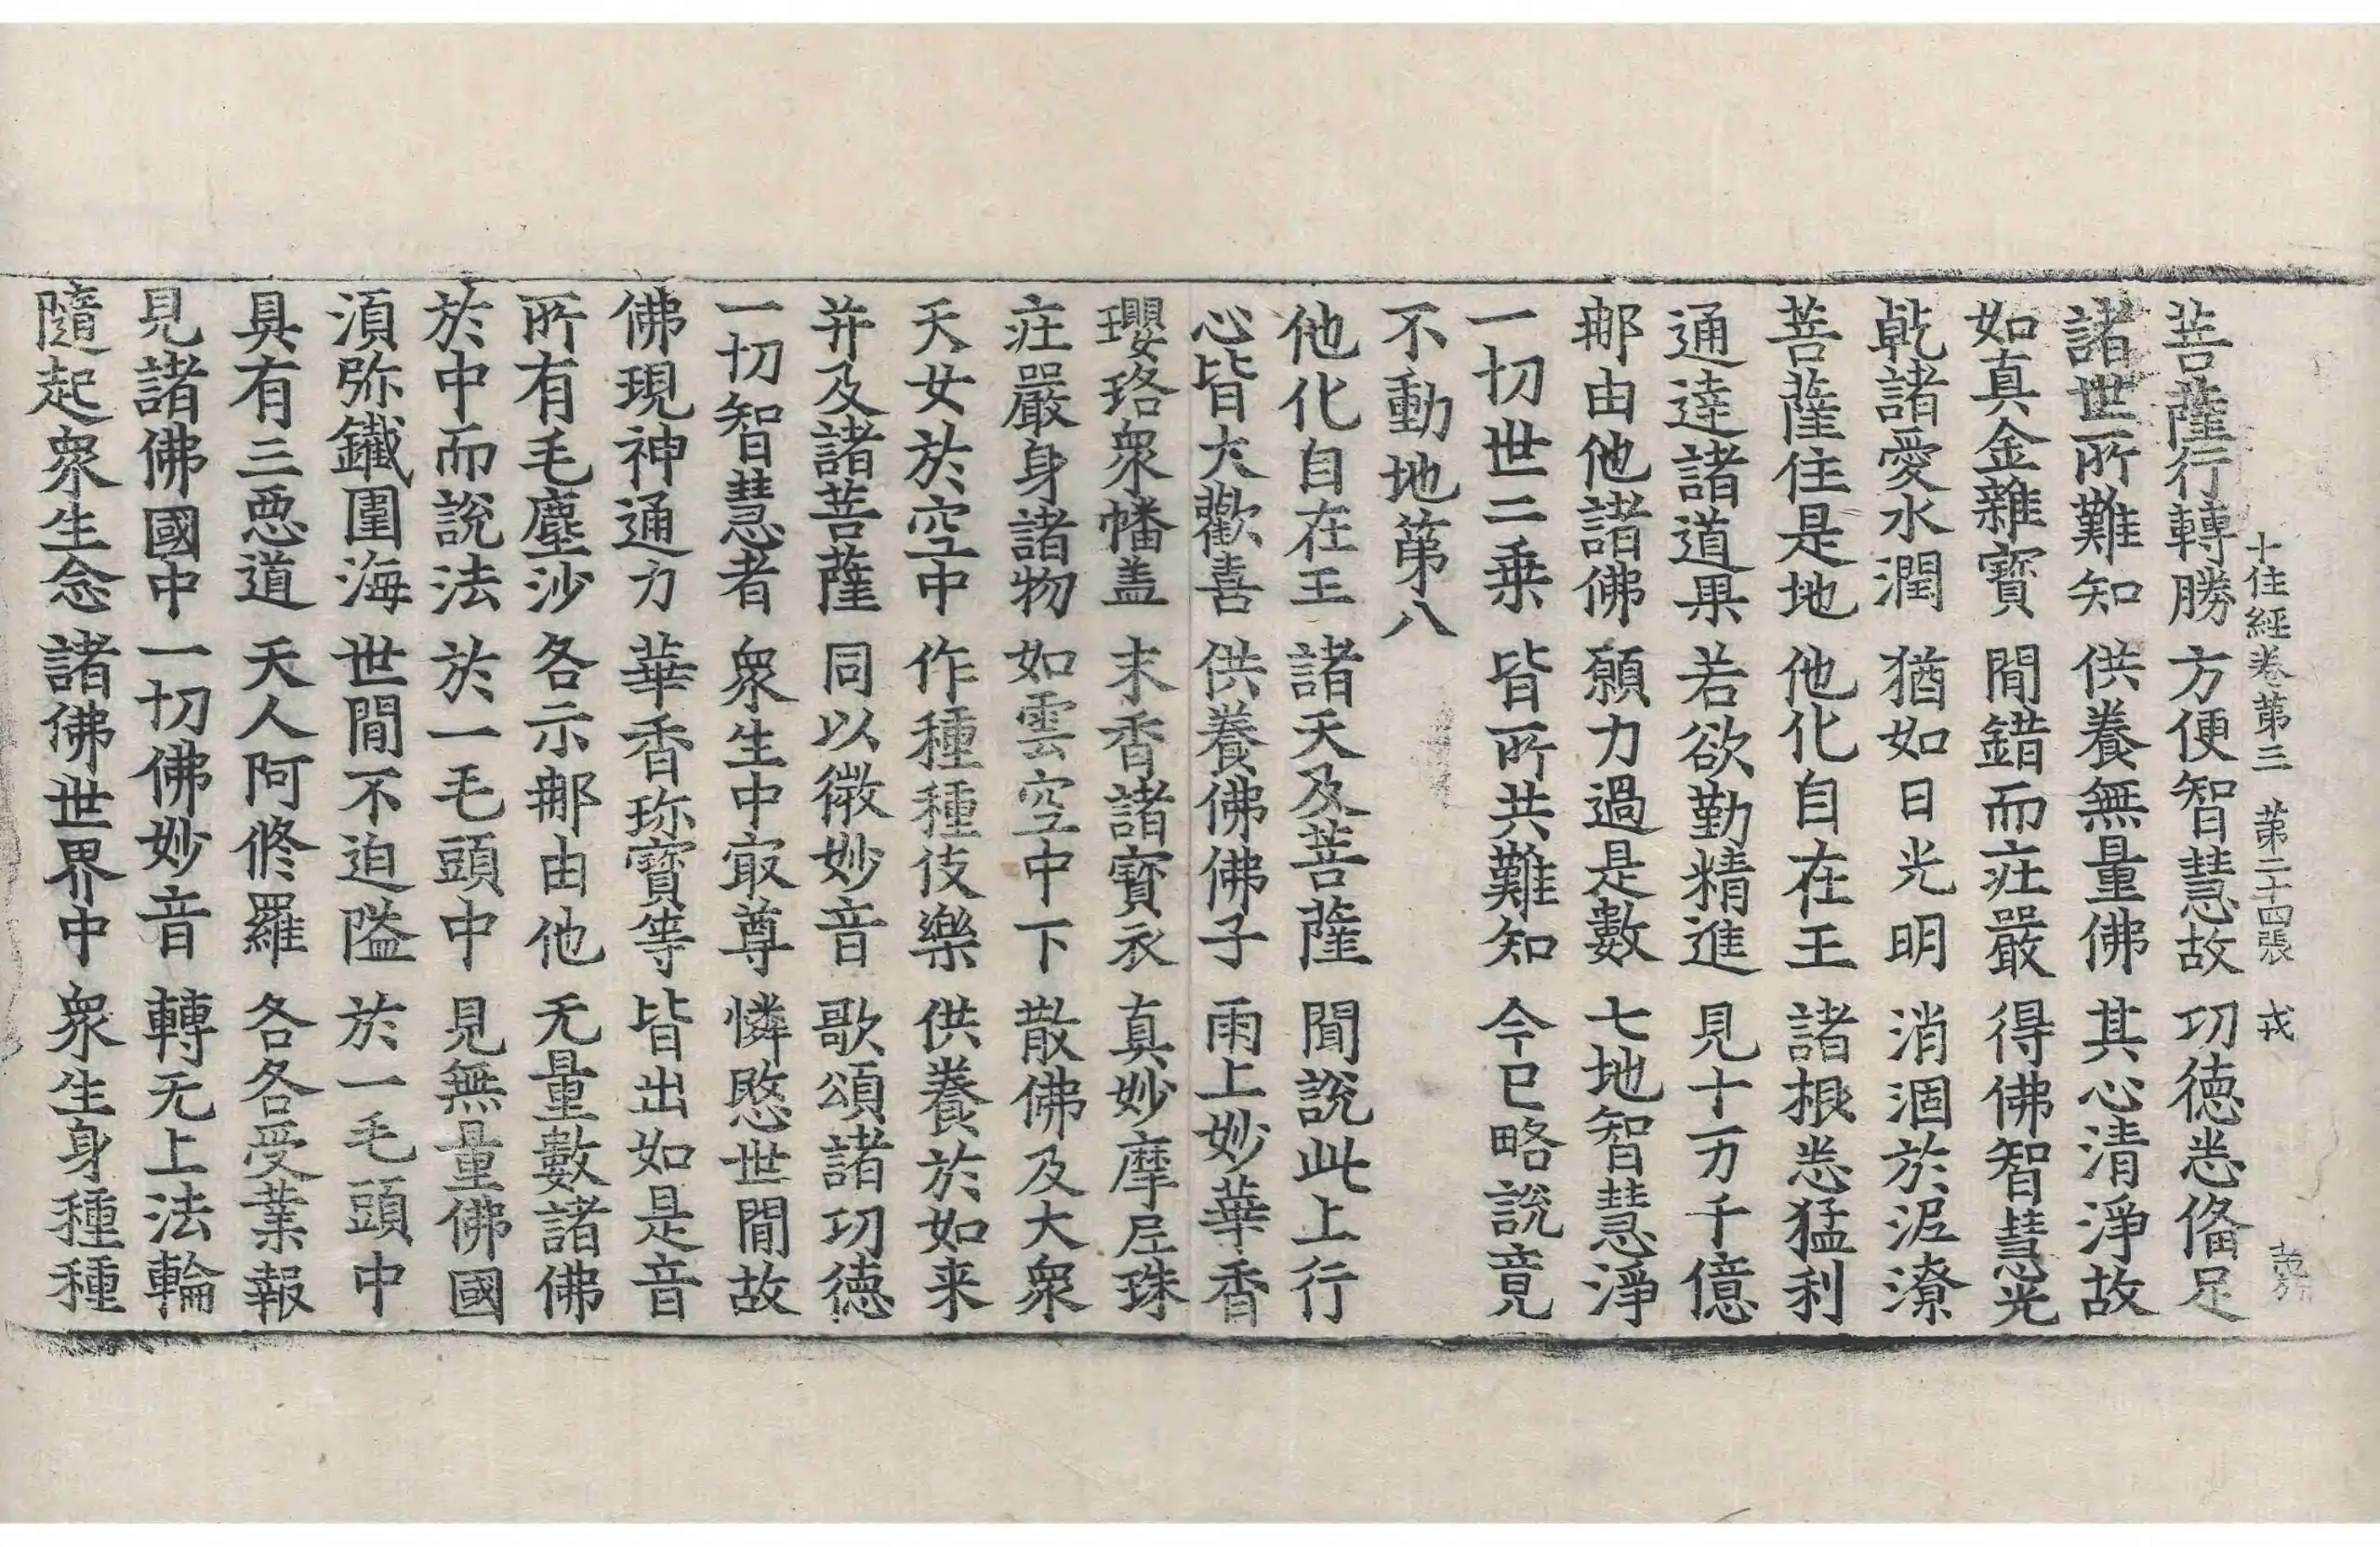 十住經卷第三 第二十四張 戎
菩薩行轉勝 方便智慧故 功德悉俻足
諸世所難知 供養無量佛 其心清淨故
如真金雜寶 間錯而莊嚴 得佛智慧光
乹諸愛水潤 猶如日光明 消涸於泥潦
菩薩住是地 他化自在王 諸根悉猛利
通達諸道果 若欲勤精進 見十万千億
那由他諸佛 願力過是數 七地智慧淨
一切世二乗 皆所共難知 今已略說竟
不動地第八
他化自在王 諸天及菩薩 聞說此上行
心皆大歡喜 供養佛佛子 雨上妙華香
瓔珞衆幡盖 末香諸寶衣 真妙摩尼珠
莊嚴身諸物 如雲空中下 散佛及大衆
天女於空中 作種種伎樂 供養於如来
并及諸菩薩 同以微妙音 歌頌諸功德
一切智慧者 衆生中㝡尊 憐愍世間故
佛現神通力 華香珎寶等 皆出如是音
所有毛塵沙 各示那由他 无量數諸佛
於中而說法 於一毛頭中 見無量佛國
湏弥鐵圍海 世間不迫隘 於一毛頭中
具有三惡道 天人阿脩羅 各各受業報
見諸佛國中 一切佛妙音 轉无上法輪
隨起衆生念 諸佛世界中 衆生身種種